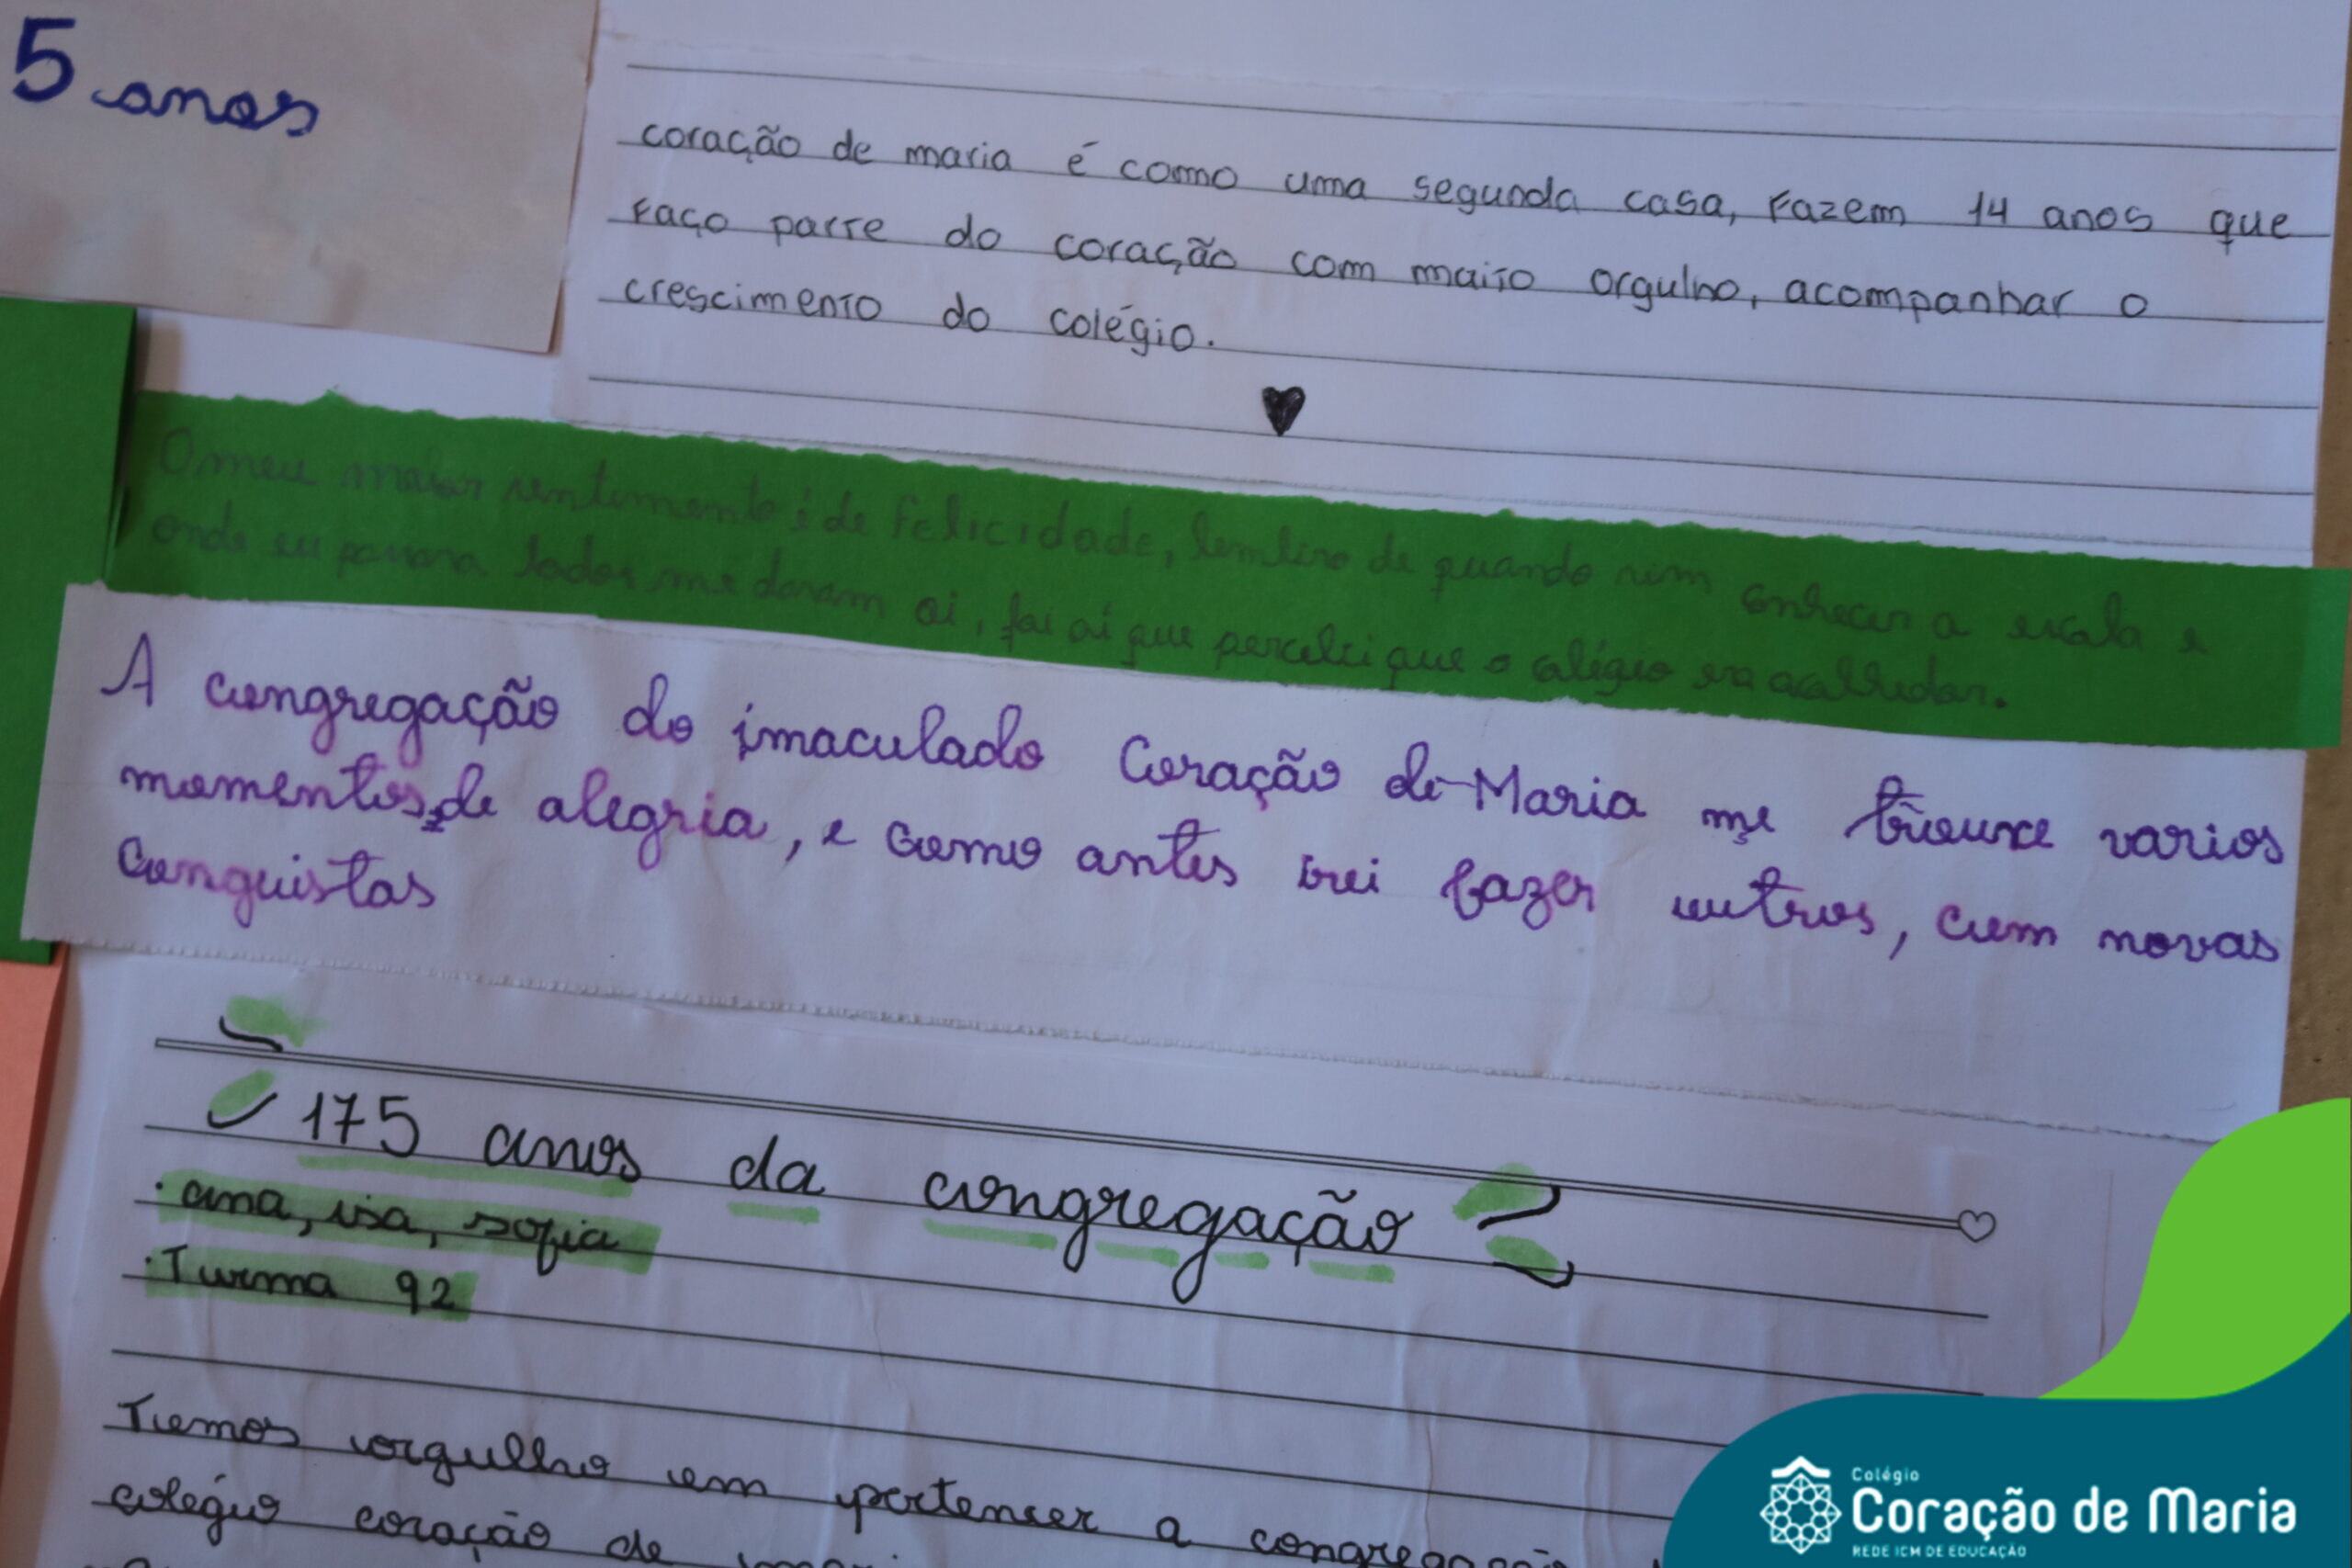 5 anos
coração de maria é como uma segunda casa, Fazem 14 anos que
Faço parte do coração com muito orgulho, acompanhar o
crescimento do colégio.
O meu maior sentimento é de felicidade, lembro de quando vim conhecer a escola e
onde eu passava todos me davam oi, foi aí que percebi que o colégio era acolhedor.
A congregação do imaculado Coração de Maria me trouxe varios
momentos de alegria, e como antes irei fazer outros, com novas
Conquistas
175 anos da congregação
· ana, isa, sofia
· Turma 92
Temos orgulho em pertencer a congregação
colégio coração de
Colégio
Coração de Maria
REDE ICM DE EDUCAÇÃO